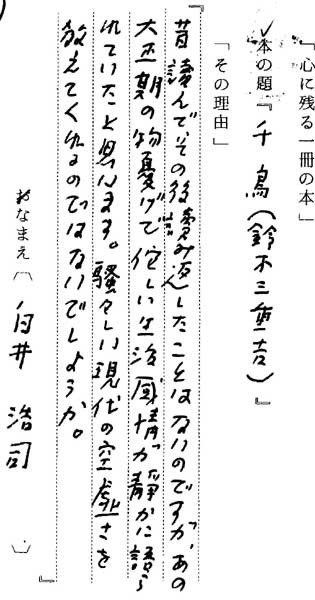 「心に残る一冊の本」
本の題『千鳥(鈴木三重吉)』
「その理由」
『昔読んで、その後読み返したことはないのですが、あの
大正期の物憂げで侘しい生活感情が静かに語ら
れていたと思います。騒々しい現代の空虚さを
教えてくれるのではないでしょうか。
おなまえ〔白井 浩司〕
』